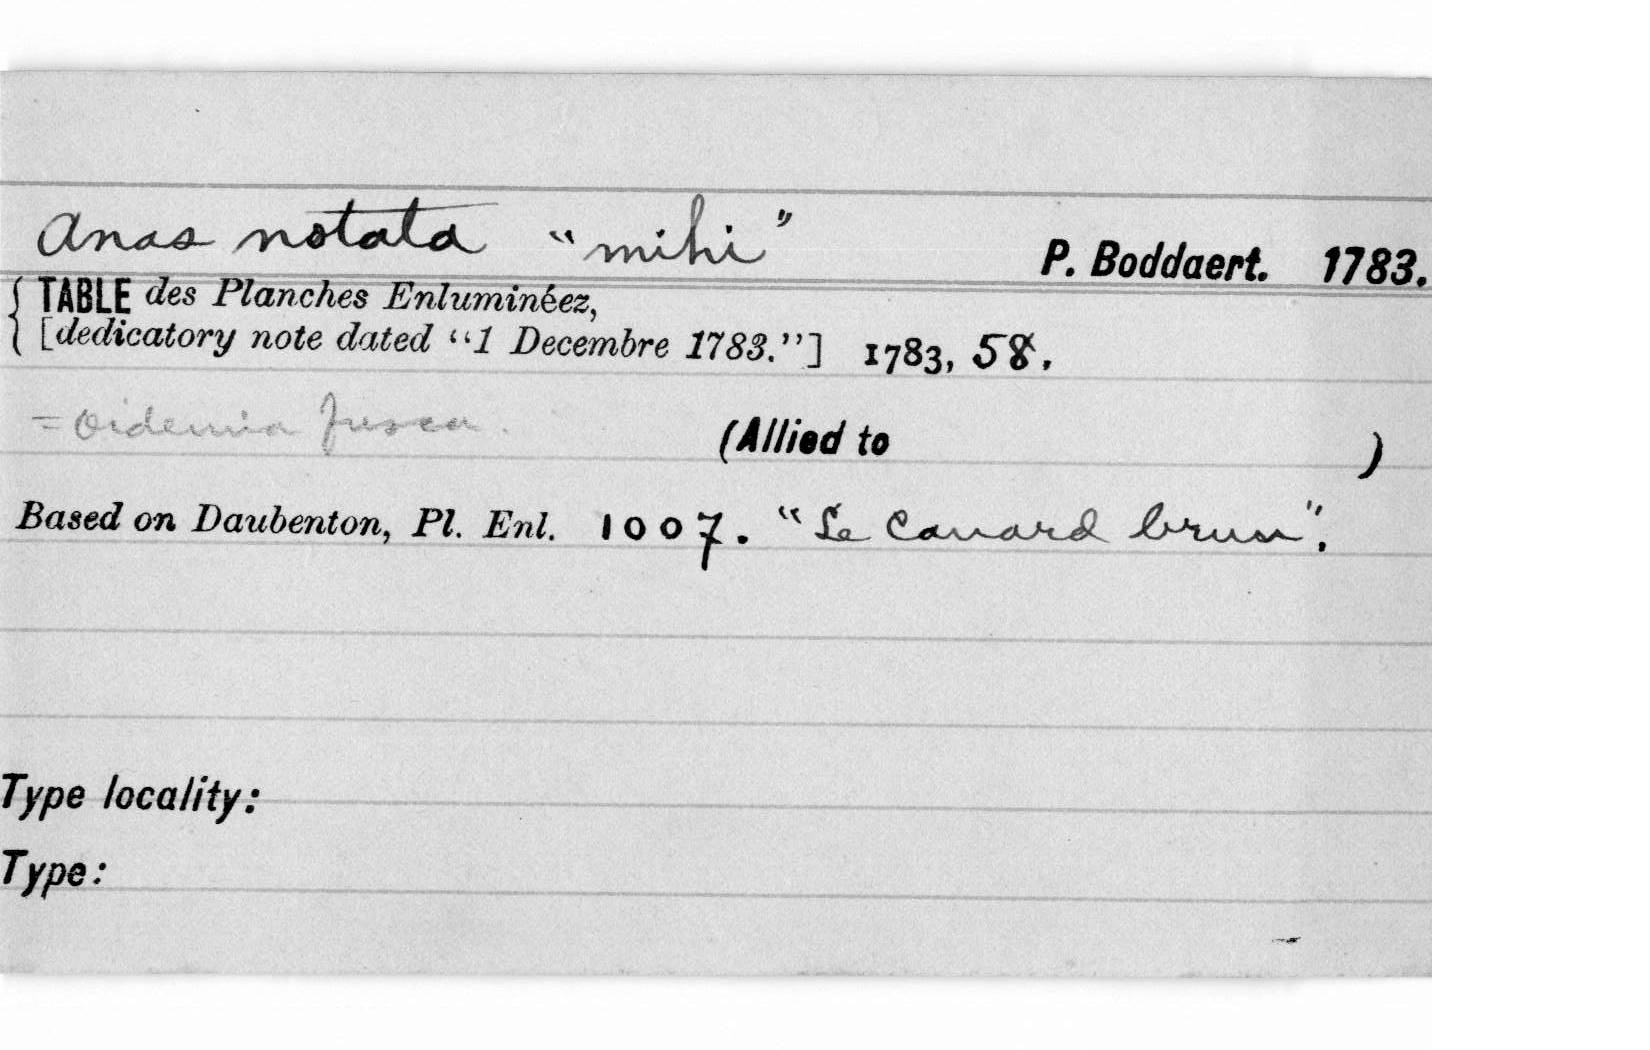 Anas notata “mihi” P. Boddaert. 1783.
TABLE des Planches Enluminéez,
[dedicatory note dated “1 Decembre 1783.”] 1783, 58.
= Oidemia fusca. (Allied to )
Based on Daubenton, Pl. Enl. 1007. “Le Canard brun”.
Type locality:
Type: